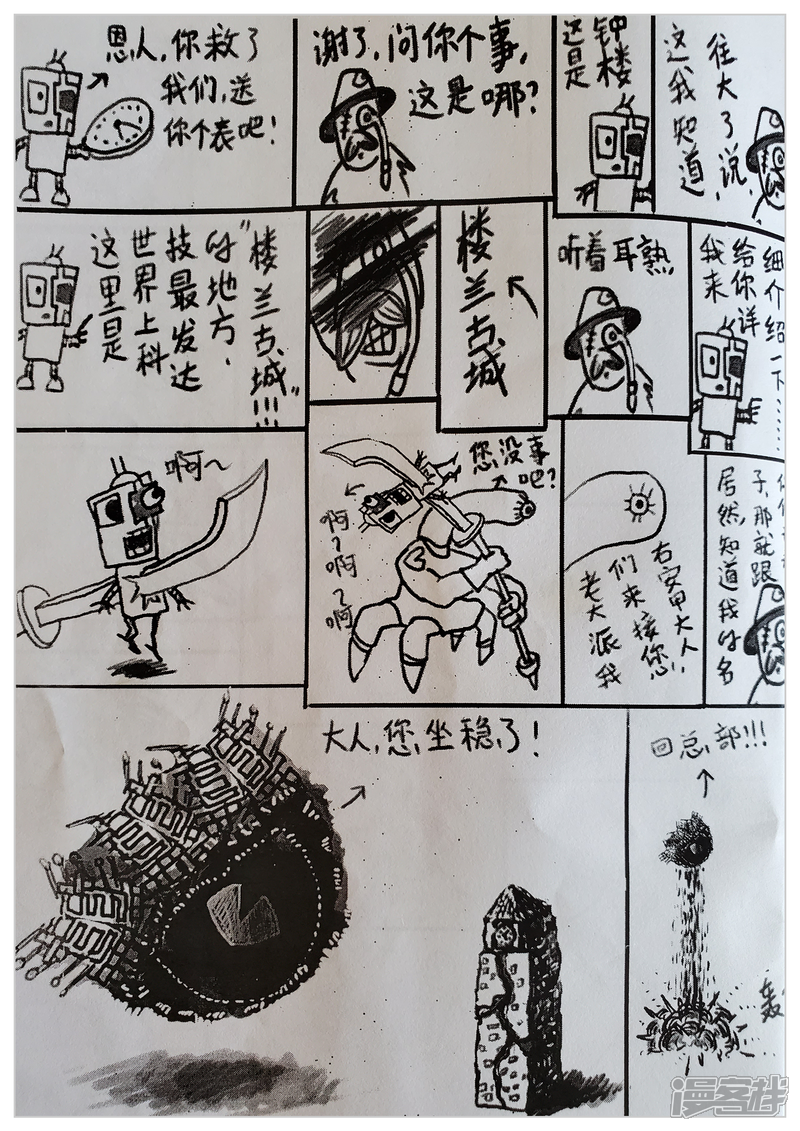 恩人,你救了
我们,送
你个表吧!
谢了,问你个事,
这是哪?
这是
钟楼
这我知道,
往大了说,
这里是
世界上科
技最发达
的地方,
“楼兰古城”!!!
楼兰古城
听着耳熟
我来
给你详
细介绍一下……
啊~
您没事
吧?
啊~啊~啊
老大派我
们来接您
右安甲大人,
居然知道我的名
子,那就跟
大人,您坐稳了!
回总部!!!
轰
漫客栈